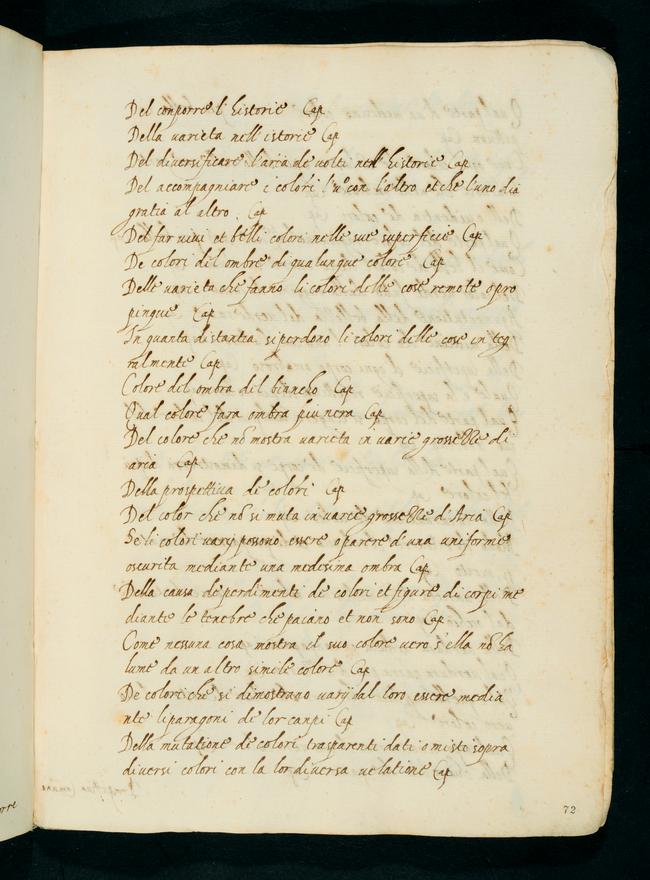 Del conporre l'historie Cap
Della varieta nell istorie Cap
Del diversificare l'aria de volti nell historie Cap
Del accompagniare i colori l'uº con l'altro et che l'uno dia
gratia al altro . Cap
Del far vivi et belli colori nelle sue superficie Cap
De colori dil ombre di qualunque colore Cap
Delle varieta che fanno li colori delle cose remote o pro
pinque Cap
In quanta distantia si perdono li colori delle cose in teg
ralmente Cap
Colore del ombra del biancho Cap
Qual colore fara ombra piu nera Cap
Del colore che nō mostra varieta in varie grossezze di
aria Cap
Della prospettiva de colori Cap
Del color che nō si muta in varie grossezze d'Aria Cap
Se li colori varij possono essere o parere d'una uniforme
oscurita mediante una medesima ombra Cap
Della causa de perdimenti de colori et figure di corpi me
diante le tenebre che paiano et non sono Cap
Come nessuna cosa mostra il suo colore vero s ella nō ha
lume da un altro simile colore Cap
De colori che si dimostrano varij dal loro essere media
nte li paragoni de lor canpi Cap
Della mutatione de colori trasparenti dati o misti sopra
diversi colori con la lor diversa velatione Cap
72